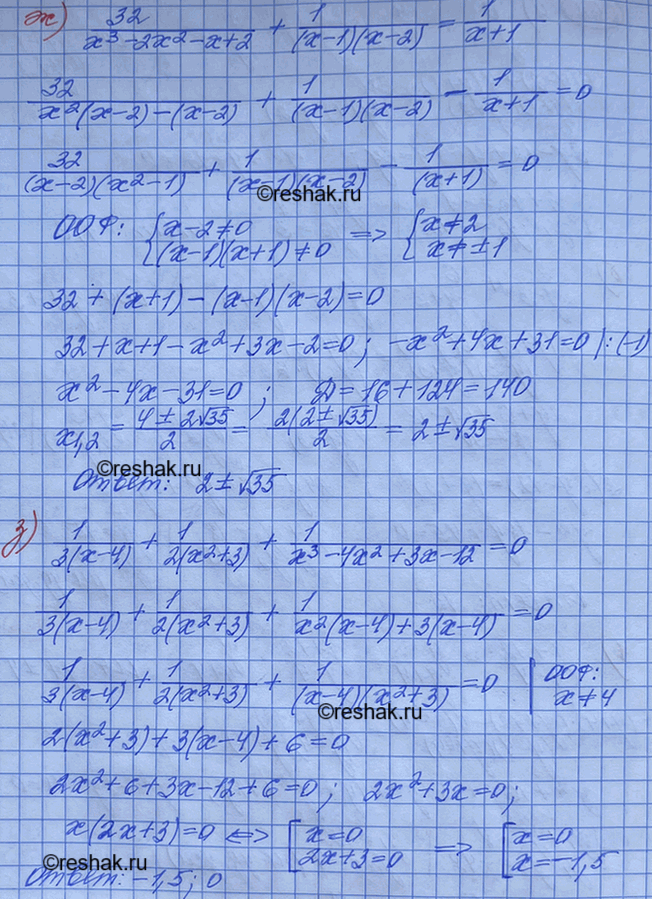 ж) 32/(x³-2x²-x+2) + 1/((x-1)(x-2)) = 1/(x+1)
32/(x²(x-2)-(x-2)) + 1/((x-1)(x-2)) - 1/(x+1) = 0
32/((x-2)(x²-1)) + 1/((x-1)(x-2)) - 1/(x+1) = 0
©reshak.ru
ООФ: { x-2≠0 ; (x-1)(x+1)≠0 => { x≠2 ; x≠±1
32+(x+1)-(x-1)(x-2)=0
32+x+1-x²+3x-2=0; -x²+4x+31=0 |:(-1)
x²-4x-31=0 ; Д=16+124=140
x1,2 = (4±2√35)/2 = 2(2±√35)/2 = 2±√35
©reshak.ru
Ответ: 2±√35
з) 1/(3(x-4)) + 1/(2(x²+3)) + 1/(x³-4x²+3x-12) = 0
1/(3(x-4)) + 1/(2(x²+3)) + 1/(x²(x-4)+3(x-4)) = 0
1/(3(x-4)) + 1/(2(x²+3)) + 1/((x-4)(x²+3)) = 0 | ООФ: x≠4
©reshak.ru
2(x²+3)+3(x-4)+6=0
2x²+6+3x-12+6=0; 2x²+3x=0;
x(2x+3)=0 <=> [ x=0 ; 2x+3=0 => [ x=0 ; x=-1,5
©reshak.ru
Ответ: -1,5; 0